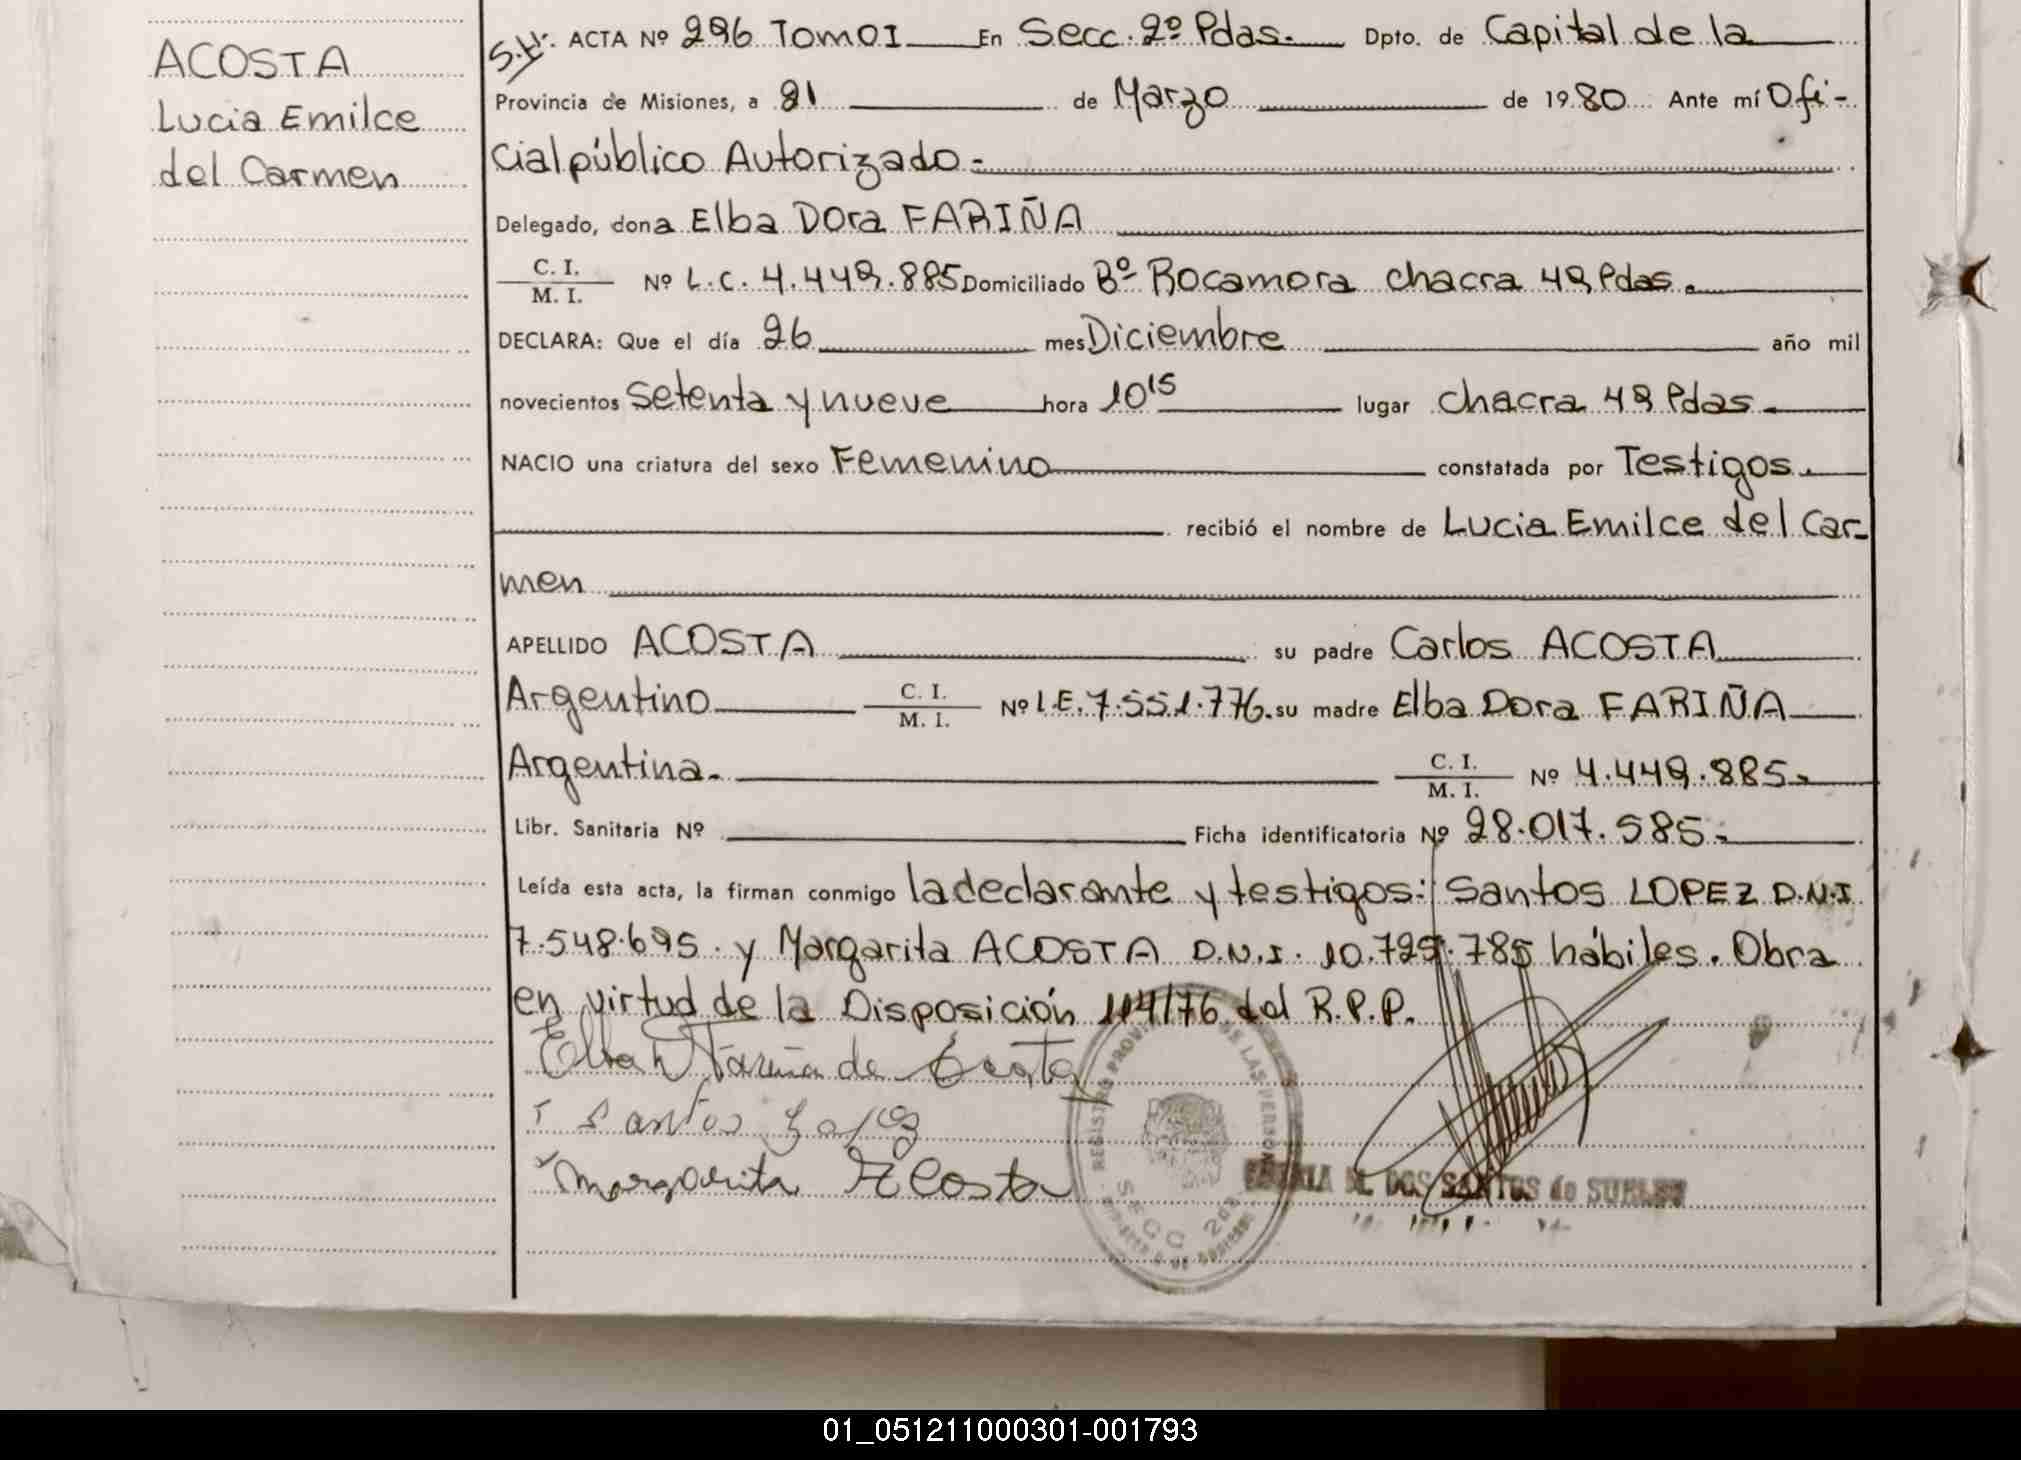 ACOSTA
Lucia Emilce
del Carmen
S.H. ACTA Nº 296 Tomo I En Secc. 2º Pdas. Dpto. de Capital de la
Provincia de Misiones, a 21 de Marzo de 1980 Ante mí Ofi-
cial público Autorizado.-
Delegado, dona Elba Dora FARIÑA
C. I.
M. I. Nº L.C. 4.449.885 Domiciliado Bº Rocamora chacra 49 Pdas.
DECLARA: Que el día 26 mes Diciembre año mil
novecientos setenta y nueve hora 10 15 lugar chacra 49 Pdas.
NACIO una criatura del sexo Femenino constatada por Testigos.
recibió el nombre de Lucia Emilce del Car-
men
APELLIDO ACOSTA su padre Carlos ACOSTA
Argentino C. I. M. I. Nº L.E. 7.551.776. su madre Elba Dora FARIÑA
Argentina. C. I. M. I. Nº 4.449.885.
Libr. Sanitaria Nº Ficha identificatoria Nº 28.017.585.
Leída esta acta, la firman conmigo la declarante y testigos: Santos LOPEZ D.N.I
7.548.695. y Margarita ACOSTA D.N.I. 10.729.785 hábiles. Obra
en virtud de la Disposición 114/76 del R.P.P.
Elba D Fariña de Acosta
Santos Lopez
Margarita Acosta
REGISTRO PROV DE LAS PERSONAS
SECC 2da
M. DOS SANTOS de
01_051211000301-001793